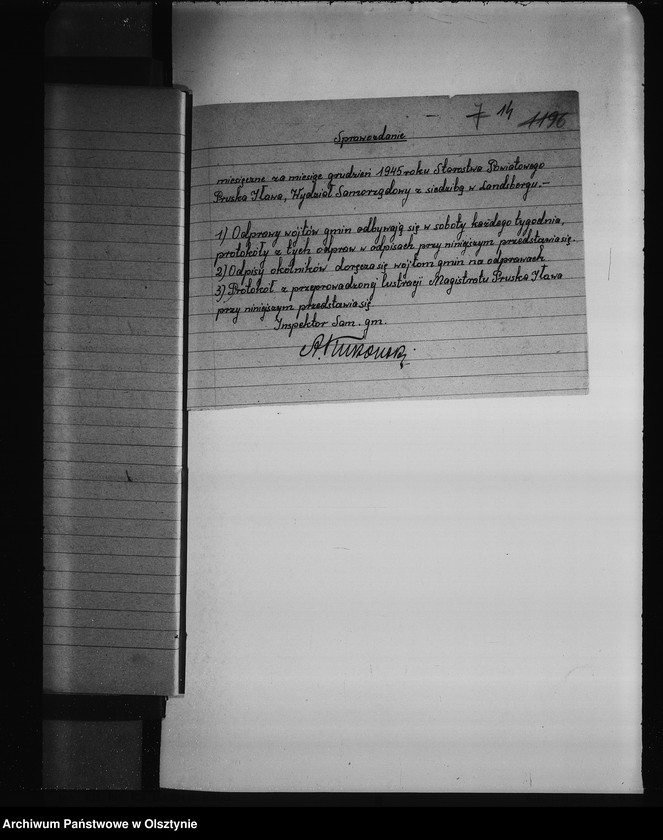 7 14 1196
Sprawozdanie
miesięczne za miesiąc grudzień 1945 roku Starostwa Powiatowego
Pruska Iława, Wydział Samorządowy z siedzibą w Landsbergu.-
1) Odprawy wójtów gmin odbywają się w soboty każdego tygodnia,
protokóły z tych odpraw w odpisach przy niniejszym przedstawia się.
2) Odpisy okólników doręcza się wójtom gmin na odprawach.
3) Protokół z przeprowadzonej lustracji Magistratu Pruska Iława
przy niniejszym przedstawia się.
Inspektor Sam. gm.
Archiwum Państwowe w Olsztynie